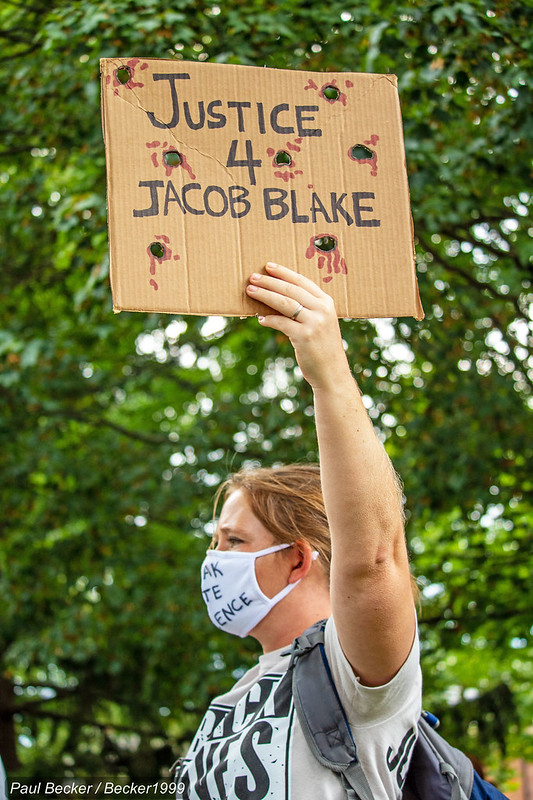 JUSTICE
4
JACOB BLAKE
AK
TE
ENCE
Paul Becker / Becker1999